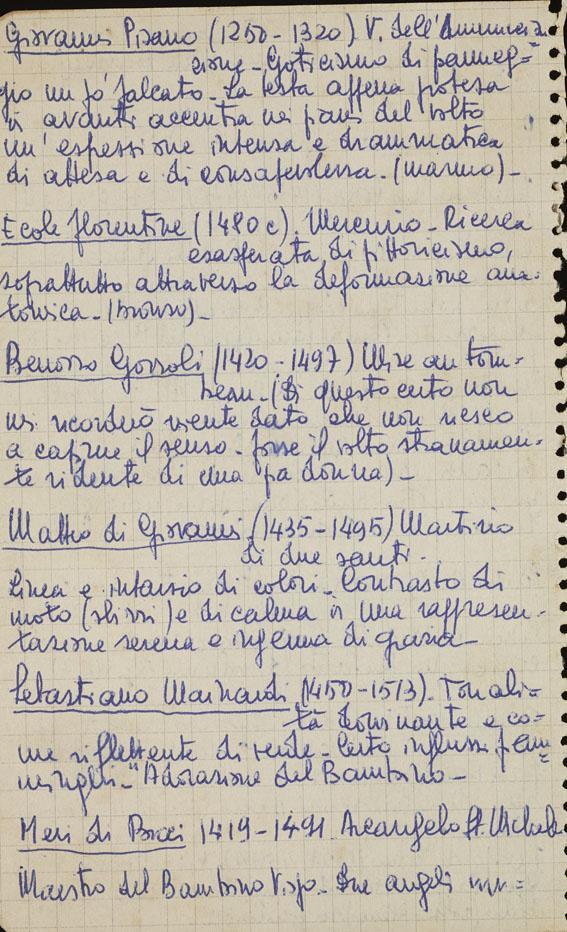 Giovanni Pisano (1250 - 1320) V. dell'Annuncia=
zione - Goticismo di panneg=
gio un po' falcato - La testa appena protesa
in avanti accentra nei piani del volto
un' espressione intensa e drammatica
di attesa e di consapevolezza. (marmo) -
Ecole florentine (1480 c). Mercurio - Ricerca
esasperata di pittoricismo,
soprattutto attraverso la deformazione ana=
tomica - (bronzo) -
Benozzo Gozzoli (1420 - 1497) Mise au tom=
beau - (Di questo certo non
mi ricorderò niente dato che non riesco
a capirne il senso - forse il volto stranamen=
te ridente di una pia donna) -
Matteo di Giovanni (1435 - 1495) Martirio
di due santi -
Linea e intarsio di colori - Contrasto di
moto ( ) e di calma in una rappresen=
tazione serena e ingenua di grazia -
Sebastiano Mainardi (1450 - 1513) - Tonali=
tà dominante e co=
me riflettente di verde - Certo influssi fiam=
minghi - "Adorazione del Bambino -
Neri di Bicci 1419 - 1491. Arcangelo St. Michele
Maestro del Bambino Vispo - Due angeli